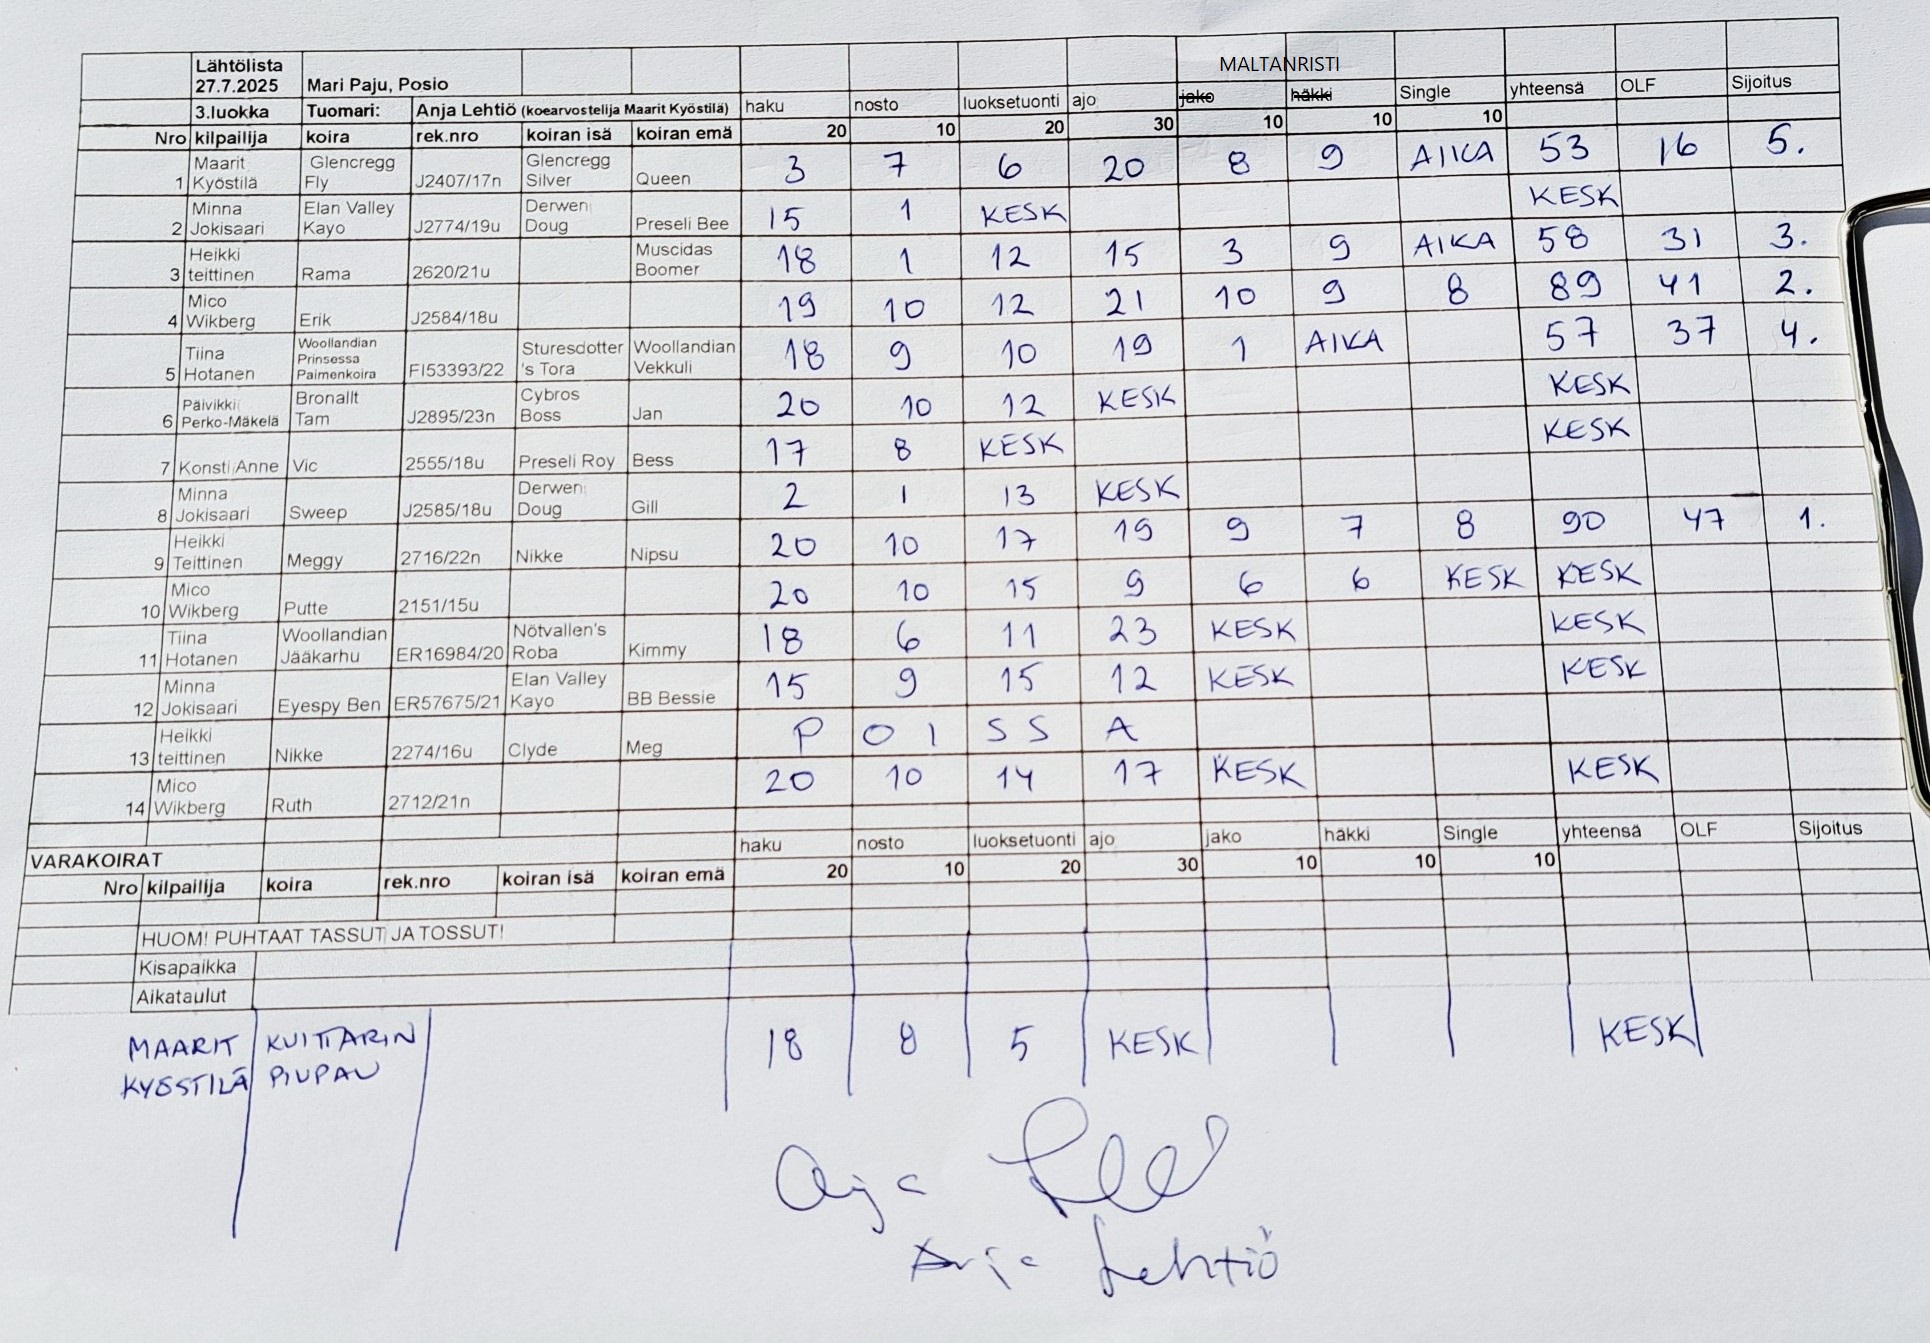 MALTANRISTI
Lähtölista 27.7.2025 Mari Paju, Posio
3.luokka Tuomari: Anja Lehtiö (koearvostelija Maarit Kyöstilä) haku nosto luoksetuonti ajo jako häkki Single yhteensä OLF Sijoitus
Nro kilpailija koira rek.nro koiran isä koiran emä 20 10 20 30 10 10 10
1 Maarit Kyöstilä Glencregg Fly J2407/17n Glencregg Silver Queen 3 7 6 20 8 9 AIKA 53 16 5.
2 Minna Jokisaari Elan Valley Kayo J2774/19u Derwen Doug Preseli Bee 15 1 KESK KESK
3 Heikki teittinen Rama 2620/21u Muscidas Boomer 18 1 12 15 3 9 AIKA 58 31 3.
4 Mico Wikberg Erik J2584/18u 19 10 12 21 10 9 8 89 41 2.
5 Tiina Hotanen Woollandian Prinsessa Paimenkoira FI53393/22 Sturesdotter's Tora Woollandian Vekkuli 18 9 10 19 1 AIKA 57 37 4.
6 Päivikki Perko-Mäkelä Bronallt Tam J2895/23n Cybros Boss Jan 20 10 12 KESK KESK
7 Konsti Anne Vic 2555/18u Preseli Roy Bess 17 8 KESK KESK
8 Minna Jokisaari Sweep J2585/18u Derwen Doug Gill 2 1 13 KESK
9 Heikki Teittinen Meggy 2716/22n Nikke Nipsu 20 10 17 19 9 7 8 90 47 1.
10 Mico Wikberg Putte 2151/15u 20 10 15 9 6 6 KESK KESK
11 Tiina Hotanen Woollandian Jääkarhu ER16984/20 Nötvallen's Roba Kimmy 18 6 11 23 KESK KESK
12 Minna Jokisaari Eyespy Ben ER57675/21 Elan Valley Kayo BB Bessie 15 9 15 12 KESK KESK
13 Heikki teittinen Nikke 2274/16u Clyde Meg P O I S S A
14 Mico Wikberg Ruth 2712/21n 20 10 14 17 KESK KESK
haku nosto luoksetuonti ajo jako häkki Single yhteensä OLF Sijoitus
VARAKOIRAT 20 10 20 30 10 10 10
Nro kilpailija koira rek.nro koiran isä koiran emä
HUOM! PUHTAAT TASSUT JA TOSSUT!
Kisapaikka
Aikataulut
MAARIT KYÖSTILÄ KUITTARIN PIUPAU 18 8 5 KESK KESK
Anja Lehtiö